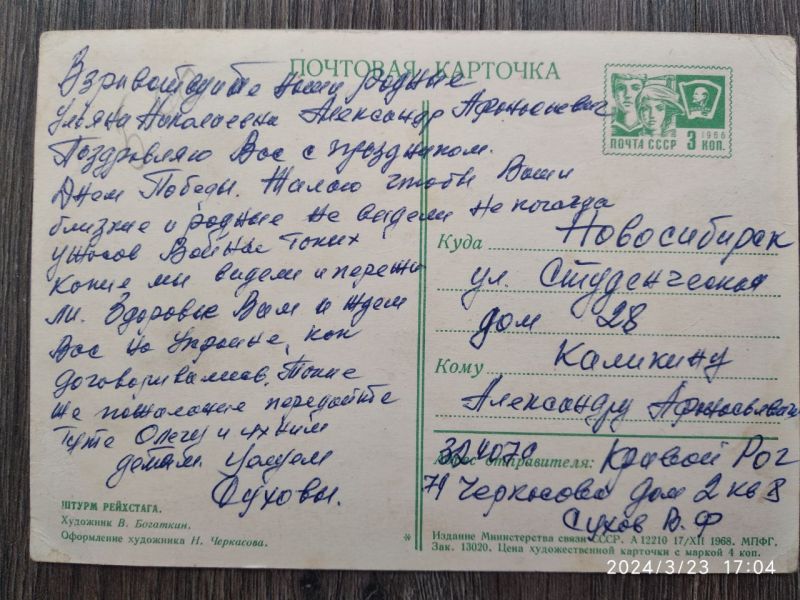 ПОЧТОВАЯ КАРТОЧКА
Здравствуйте наши родные
Ульяна Николаевна Александр Афанасьевич
Поздравляю Вас с праздником.
Днем Победы. Желаю чтобы Ваши
близкие и родные не видели не когда
ужасов Войны таких
какие мы видели и пережи
ли. Здоровье Вам и ждем
Вас на Украине, как
договаривались. Такие
же пожелание передайте
Тете Олегу и ихним
детям. Целуем
Суховы.
ШТУРМ РЕЙХСТАГА.
Художник В. Богаткин.
Оформление художника Н. Черкасова.
1966
ПОЧТА СССР 3 КОП.
Куда Новосибирск
ул. Студенческая
дом 28
Кому Каликину
Александру Афанасьевич
Адрес отправителя: Кривой Рог
Черкасова дом 2 кв 8
Сухов В. Ф
*
Издание Министерства связи СССР. А 12210 17/XII 1968. МПФГ.
Зак. 13020. Цена художественной карточки с маркой 4 коп.
2024/3/23 17:04